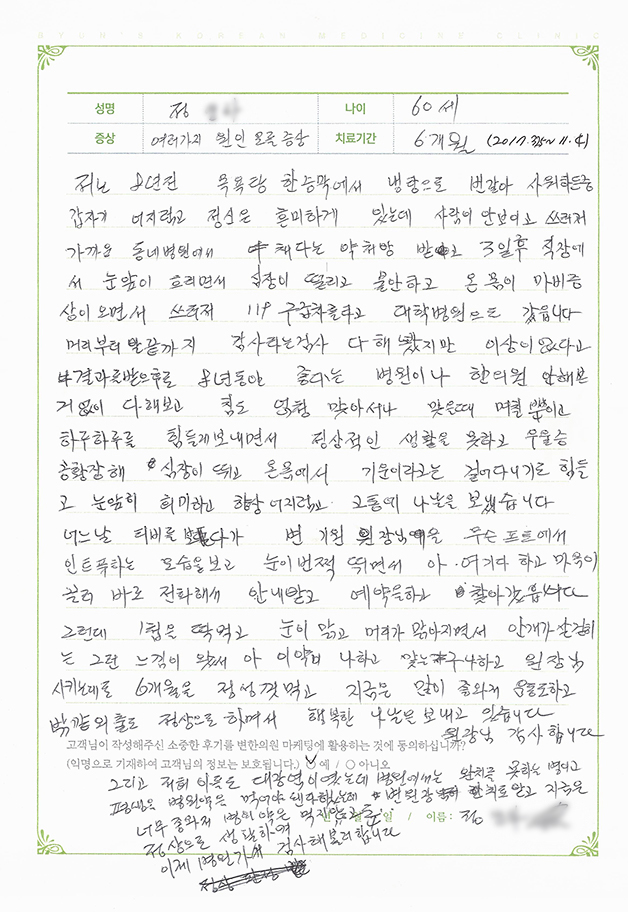 BYUN'S KOREAN MEDICINE CLINIC
성명 정 나이 60세
증상 여러가지 원인 모를 증상 치료기간 6개월 (2017. ~ 11.4)
저는 8년전 목욕탕 한증막에서 냉탕으로 번갈아 샤워하든중
갑자기 어지럽고 정신은 흔미하게 있는데 사람이 안보이고 쓰러져
가까운 동네병원에서 채다는 약처방 받고 3일후 직장에
서 눈앞이 흐리면서 심장이 떨리고 불안하고 온몸이 마비증
상이오면서 쓰러져 119 구급차를타고 대학병원으로 갔읍니다
머리부터 발끝까지 검사라는검사 다해봤지만 이상이없다고
결과를받은후로 8년동안 좋다는 병원이나 한의원 안해본
거 없이 다해보고 침도 엄청 맞아서나 맞을때 며칠뿐이고
하루하루를 힘들게보내면서 정상적인 생활을 못하고 우울증
공황장해 심장이 뛰고 온몸에서 기운이라고는 걸어다니기도 힘들
고 눈앞이 희미하고 항상어지럽고 고통에 나날을 보냈습니다
어느날 티비를 보다가 변기원 원장님을 무슨프로에서
인트뷰하는 모습을보고 눈이번쩍 띄면서 아 여기다 하고 마음이
끌려 바로 전화해서 안내받고 예약을하고 찾아갔읍니다
그런데 1첩을 딱먹고 눈이 맑고 머리가 맑아지면서 안개가 걷히
는 그런 느낌이 와서 아 이약이 나하고 맞는구나하고 원장님
시키는데로 6개월을 정성껏먹고 지금은 많이 좋와져 운동도하고
바깥외출도 정상으로 하면서 행복한 나날을 보내고 있습니다
원장님 감사합니다
고객님이 작성해주신 소중한 후기를 변한의원 마케팅에 활용하는 것에 동의하십니까?
(익명으로 기재하여 고객님의 정보는 보호됩니다.) ○ 예 / ○ 아니오
그리고 저희 이름도 대광역이였는데 병원에서는 완치를 못하는 병이고
평생을 병원약을 먹어야 된다했는데 변원장님께 치료받고 지금은
너무 좋와져 병원약은 먹지않고도
일 / 이름 : 정
정상으로 생활하며
이제 병원가서 검사해볼려합니다